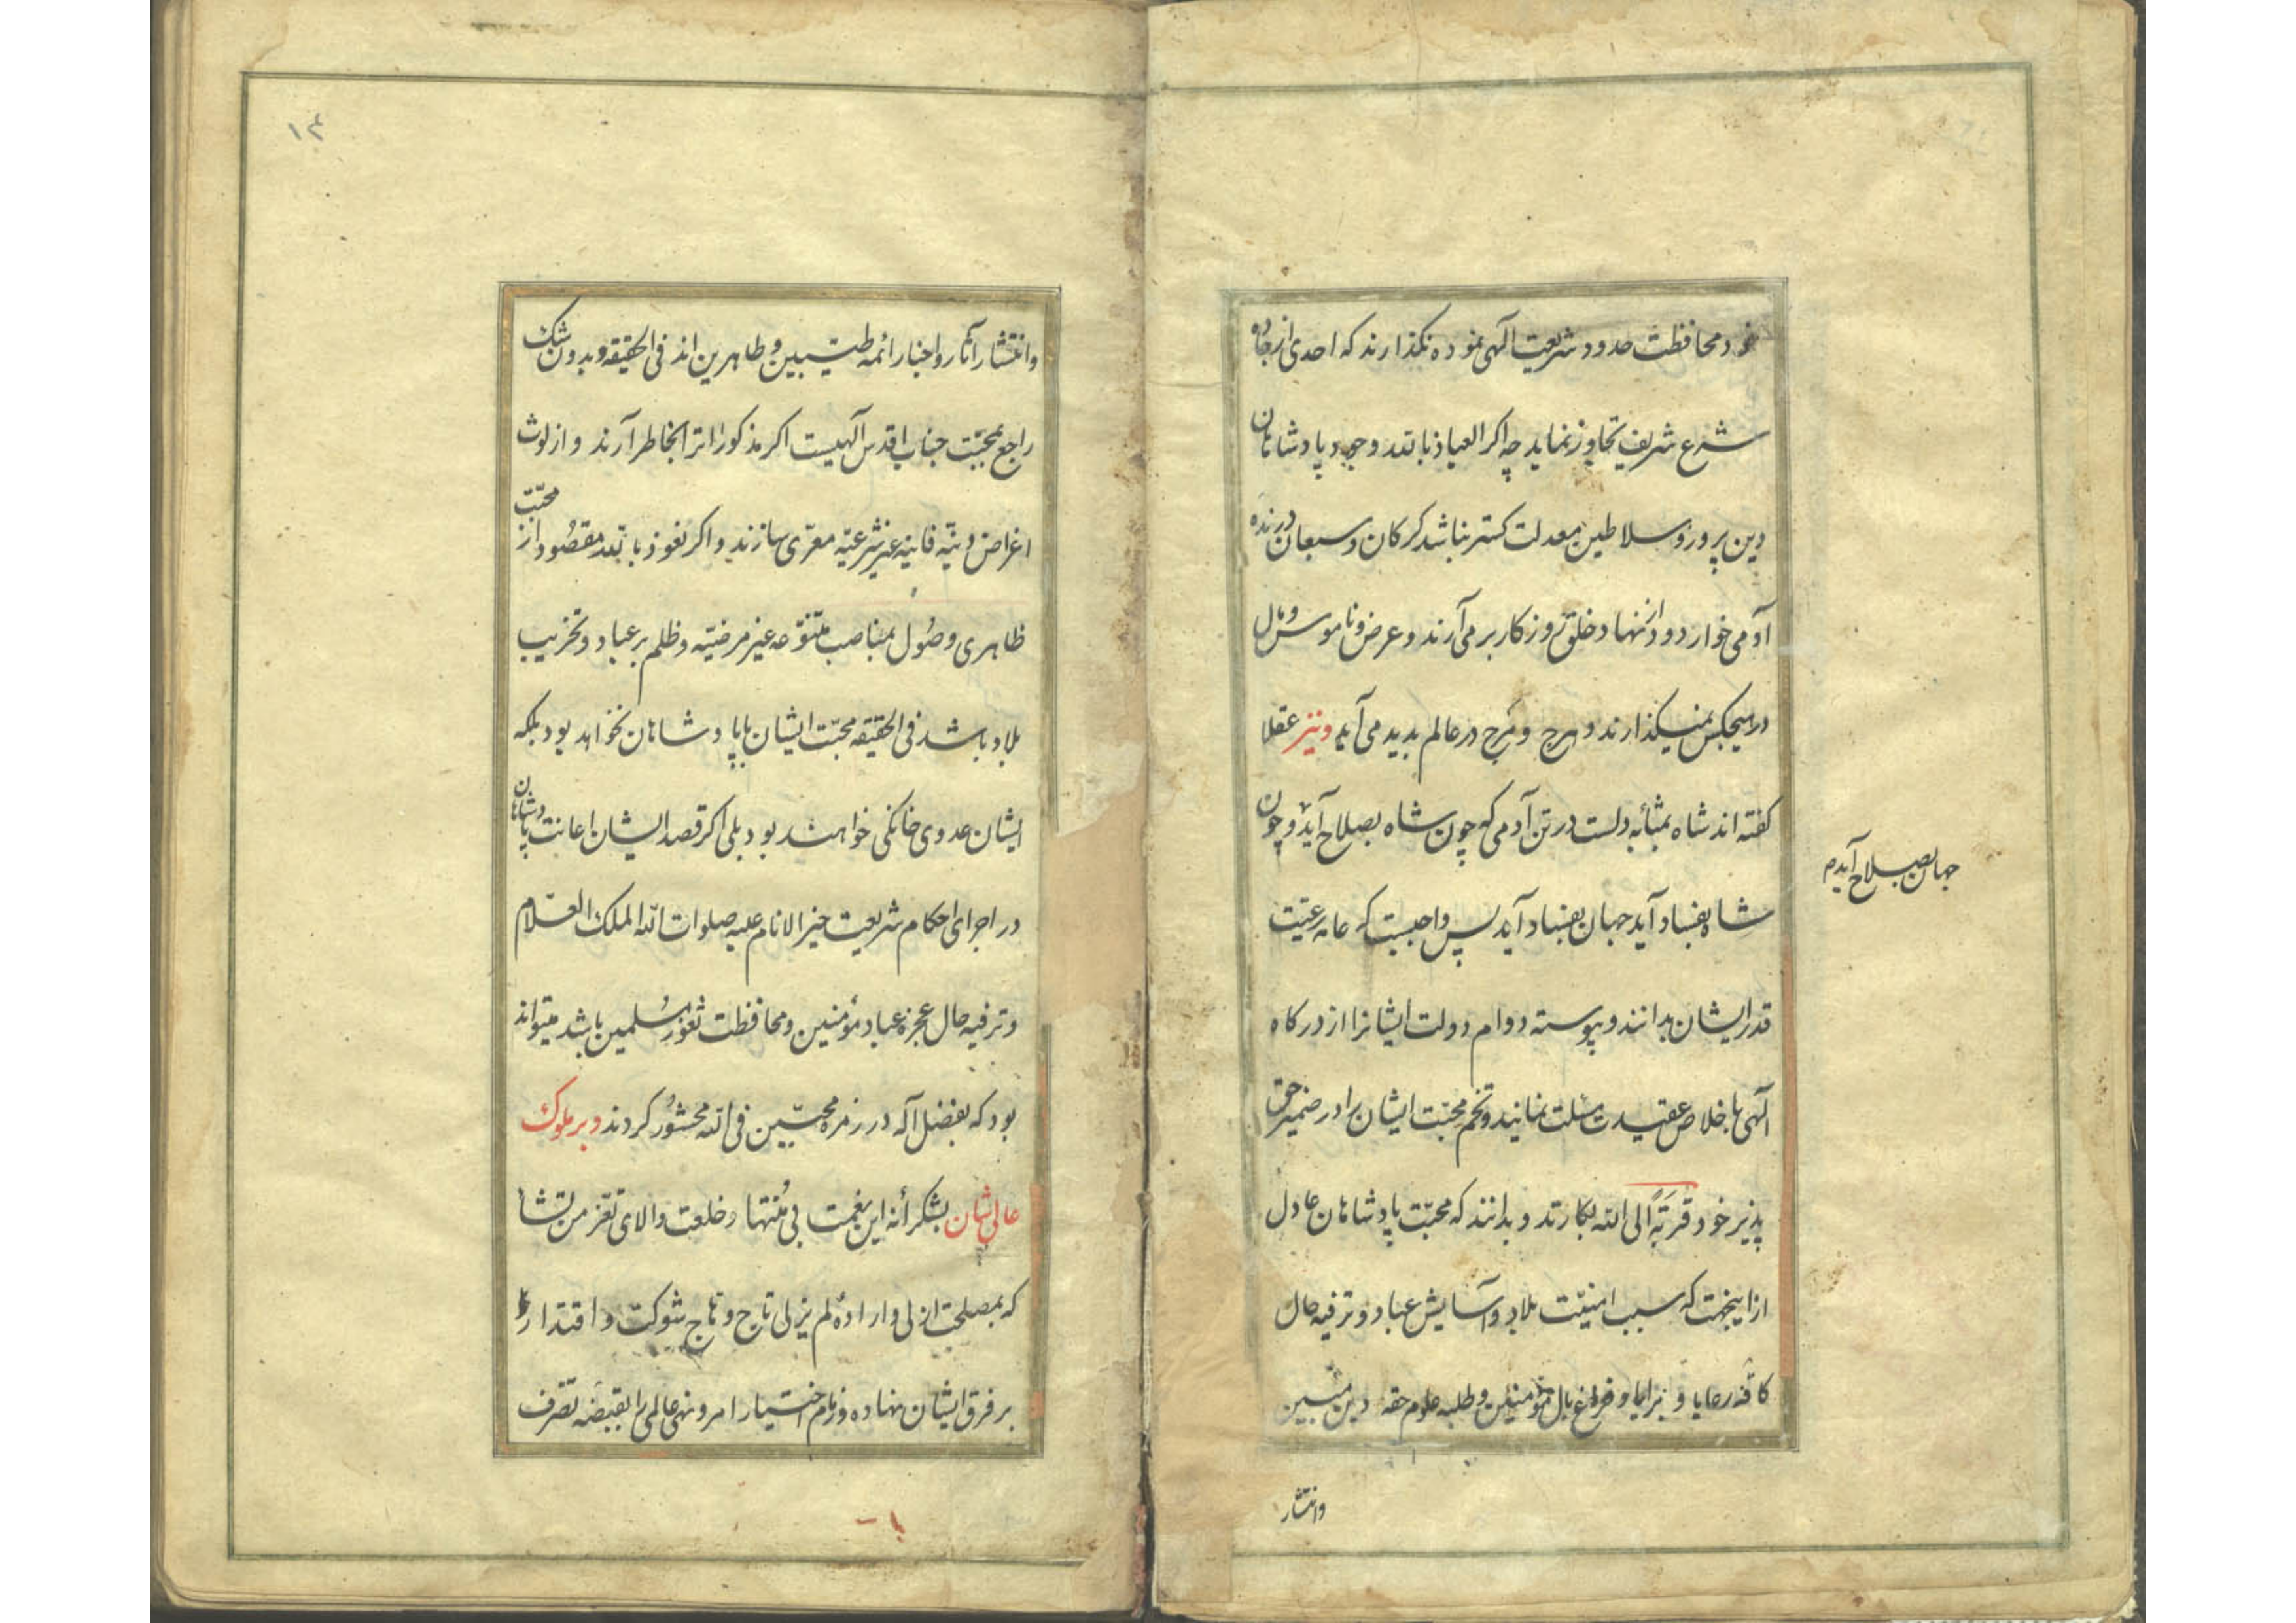 خود محافظت حدود شریعت الهی نموده نکذارند که احدی از جاده
شرع شریف تجاوز نماید چه اکر العیاذ بالله وجود پادشاهان
دین پرور و سلاطین معدلت کستر نباشد کرکان و سبعان درنده
آدمی خوار دود از نهاد خلق روزکار برمی آرند و عرض و ناموس و مال
در هیچکس نمیکذارند و هرج و مرج در عالم پدید می آید ونیز عقلا
کفته اند شاه بمثابه دلست در تن آدمی که چون شاه بصلاح آید و چون
جهان بصلاح آید م
شاه بفساد آید جهان بفساد آید پس واجبست که عامه رعیّت
قدر ایشان بدانند و پیوسته دوام دولت ایشانرا از درکاه
آلهی باخلاص عقیدت مسئلت نمایند و تخم محبّت ایشان را در ضمیر حق
پذیر خود قربَةً الی الله بکارند و بدانند که محبّت پادشاهان عادل
ازاینجهت که سبب امنیّت بلاد و آسایش عباد و ترفیه حال
کافّه رعایا و برایا و فراغ بال مؤمنین و طلبه علوم حقه دین مبین
وانتشار
۱۴
وانتشار آثار و اخبار ائمه طیّبین و طاهرین اند فی الحقیقه و بدون شک
راجع بمحبّت جناب اقدس آلهیست اکر مذکور را بخاطر آرند و از لوث
اغراض دنیّه فانیه غیر شرعیّه معرّی سازند و اکر نعوذ بالله مقصود از محبّت
ظاهری وصُول بمناصب متنوّعه غیر مرضیّه و ظلم بر عباد و تخریب
بلاد باشد فی الحقیقه محبّت ایشان با پادشاهان نخواهد بود بلکه
ایشان عدوی خانکی خواهند بود بلی اکر قصد ایشان اعانت پادشاهان
در اجرای احکام شریعت خیر الانام علیه صلوات الله الملک العلّام
و ترفیه حال عجزه عباد مؤمنین و محافظت ثغور مُسلمین باشد میتواند
بود که بفضل آله در زمره محبّین فی الله محشُور کردند و بر ملوک
عالیشان بشکرانه این نعمت بی مُنتها و خلعت والای تعز من تشا
که بمصلحت ازلی و اراده لم یزلی تاج و هاج شوکت و اقتدار
بر فرق ایشان نهاده و زمام اختیار امر و نهی عالمی را بقبضه تصّرف